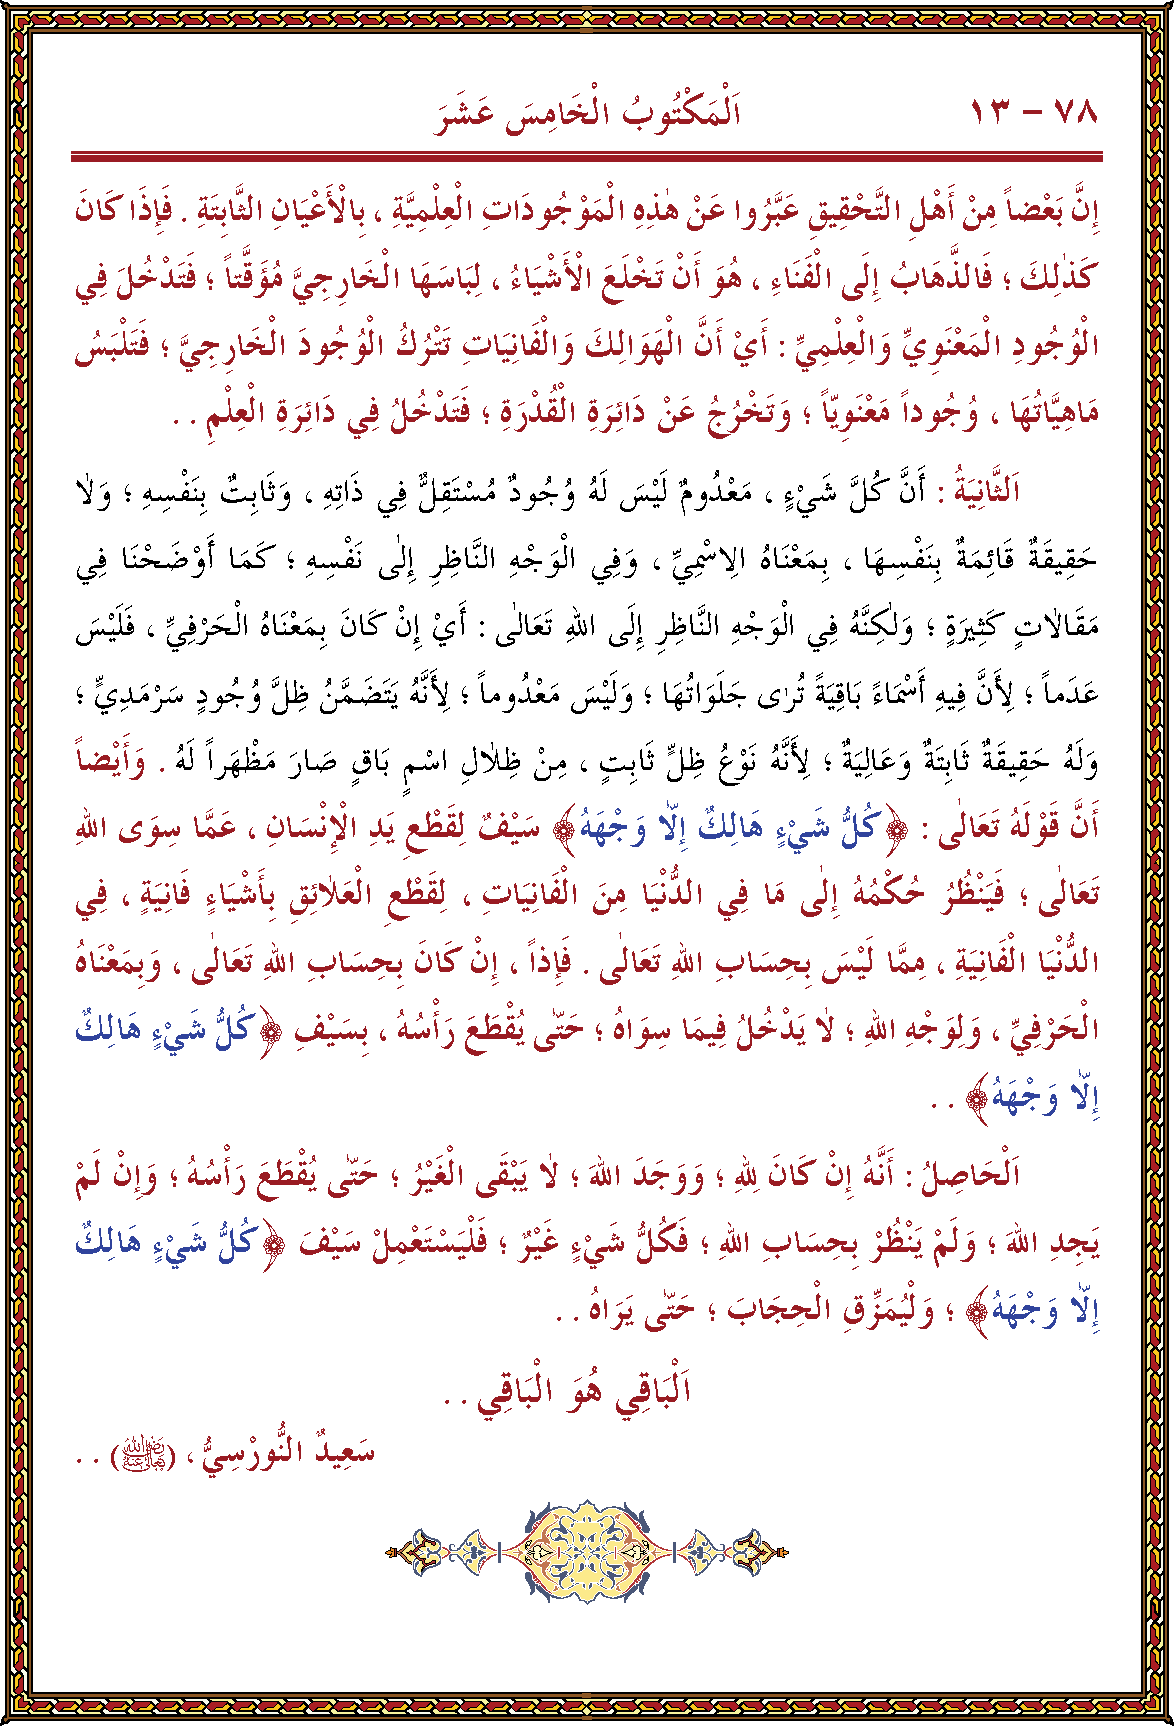 ٧٨ – ١٣
اَلْمَكْتُوبُ الْخَامِسَ عَشَرَ
إِنَّ بَعْضاً مِنْ أَهْلِ التَّحْقِيقِ عَبَّرُوا عَنْ هٰذِهِ الْمَوْجُودَاتِ الْعِلْمِيَّةِ ، بِالْأَعْيَانِ الثَّابِتَةِ . فَإِذَا كَانَ
كَذٰلِكَ ؛ فَالذَّهَابُ إِلَى الْفَنَاءِ ، هُوَ أَنْ تَخْلَعَ الْأَشْيَاءُ ، لِبَاسَهَا الْخَارِجِيَّ مُؤَقَّتاً ؛ فَتَدْخُلَ فِي
الْوُجُودِ الْمَعْنَوِيِّ وَالْعِلْمِيِّ : أَيْ أَنَّ الْهَوَالِكَ وَالْفَانِيَاتِ تَتْرُكُ الْوُجُودَ الْخَارِجِيَّ ؛ فَتَلْبَسُ
مَاهِيَّاتُهَا ، وُجُوداً مَعْنَوِيّاً ؛ وَتَخْرُجُ عَنْ دَائِرَةِ الْقُدْرَةِ ؛ فَتَدْخُلُ فِي دَائِرَةِ الْعِلْمِ . .
اَلثَّانِيَةُ : أَنَّ كُلَّ شَيْءٍ ، مَعْدُومٌ لَيْسَ لَهُ وُجُودٌ مُسْتَقِلٌّ فِي ذَاتِهِ ، وَثَابِتٌ بِنَفْسِهِ ؛ وَلاٰ
حَقِيقَةٌ قَائِمَةٌ بِنَفْسِهَا ، بِمَعْنَاهُ الاِسْمِيِّ ، وَفِي الْوَجْهِ النَّاظِرِ إِلٰى نَفْسِهِ ؛ كَمَا أَوْضَحْنَا فِي
مَقَالاٰتٍ كَثِيرَةٍ ؛ وَلٰكِنَّهُ فِي الْوَجْهِ النَّاظِرِ إِلَى اللهِ تَعَالٰى : أَيْ إِنْ كَانَ بِمَعْنَاهُ الْحَرْفِيِّ ، فَلَيْسَ
عَدَماً ؛ لِأَنَّ فِيهِ أَسْمَاءً بَاقِيَةً تُرٰى جَلَوَاتُهَا ؛ وَلَيْسَ مَعْدُوماً ؛ لِأَنَّهُ يَتَضَمَّنُ ظِلَّ وُجُودٍ سَرْمَدِيٍّ ؛
وَلَهُ حَقِيقَةٌ ثَابِتَةٌ وَعَالِيَةٌ ؛ لِأَنَّهُ نَوْعُ ظِلٍّ ثَابِتٍ ، مِنْ ظِلاٰلِ اسْمٍ بَاقٍ صَارَ مَظْهَراً لَهُ . وَأَيْضاً
أَنَّ قَوْلَهُ تَعَالٰى : ﴿كُلُّ شَيْءٍ هَالِكٌ إِلاّٰ وَجْهَهُ﴾ سَيْفٌ لِقَطْعِ يَدِ الْإِنْسَانِ ، عَمَّا سِوَى اللهِ
تَعَالٰى ؛ فَيَنْظُرُ حُكْمُهُ إِلٰى مَا فِي الدُّنْيَا مِنَ الْفَانِيَاتِ ، لِقَطْعِ الْعَلاٰئِقِ بِأَشْيَاءٍ فَانِيَةٍ ، فِي
الدُّنْيَا الْفَانِيَةِ ، مِمَّا لَيْسَ بِحِسَابِ اللهِ تَعَالٰى . فَإِذاً ، إِنْ كَانَ بِحِسَابِ اللهِ تَعَالٰى ، وَبِمَعْنَاهُ
الْحَرْفِيِّ ، وَلِوَجْهِ اللهِ ؛ لاٰ يَدْخُلُ فِيمَا سِوَاهُ ؛ حَتّٰى يُقْطَعَ رَأْسُهُ ، بِسَيْفِ ﴿كُلُّ شَيْءٍ هَالِكٌ
إِلاّٰ وَجْهَهُ﴾ . .
اَلْحَاصِلُ : أَنَّهُ إِنْ كَانَ لِلهِ ؛ وَوَجَدَ اللهَ ؛ لاٰ يَبْقَى الْغَيْرُ ؛ حَتّٰى يُقْطَعَ رَأْسُهُ ؛ وَإِنْ لَمْ
يَجِدِ اللهَ ؛ وَلَمْ يَنْظُرْ بِحِسَابِ اللهِ ؛ فَكُلُّ شَيْءٍ غَيْرٌ ؛ فَلْيَسْتَعْمِلْ سَيْفَ ﴿كُلُّ شَيْءٍ هَالِكٌ
إِلاّٰ وَجْهَهُ﴾ ؛ وَلْيُمَزِّقِ الْحِجَابَ ؛ حَتّٰى يَرَاهُ . .
اَلْبَاقِي هُوَ الْبَاقِي . .
سَعِيدٌ النُّورْسِيُّ ، (رضي الله تعالى عنه) . .